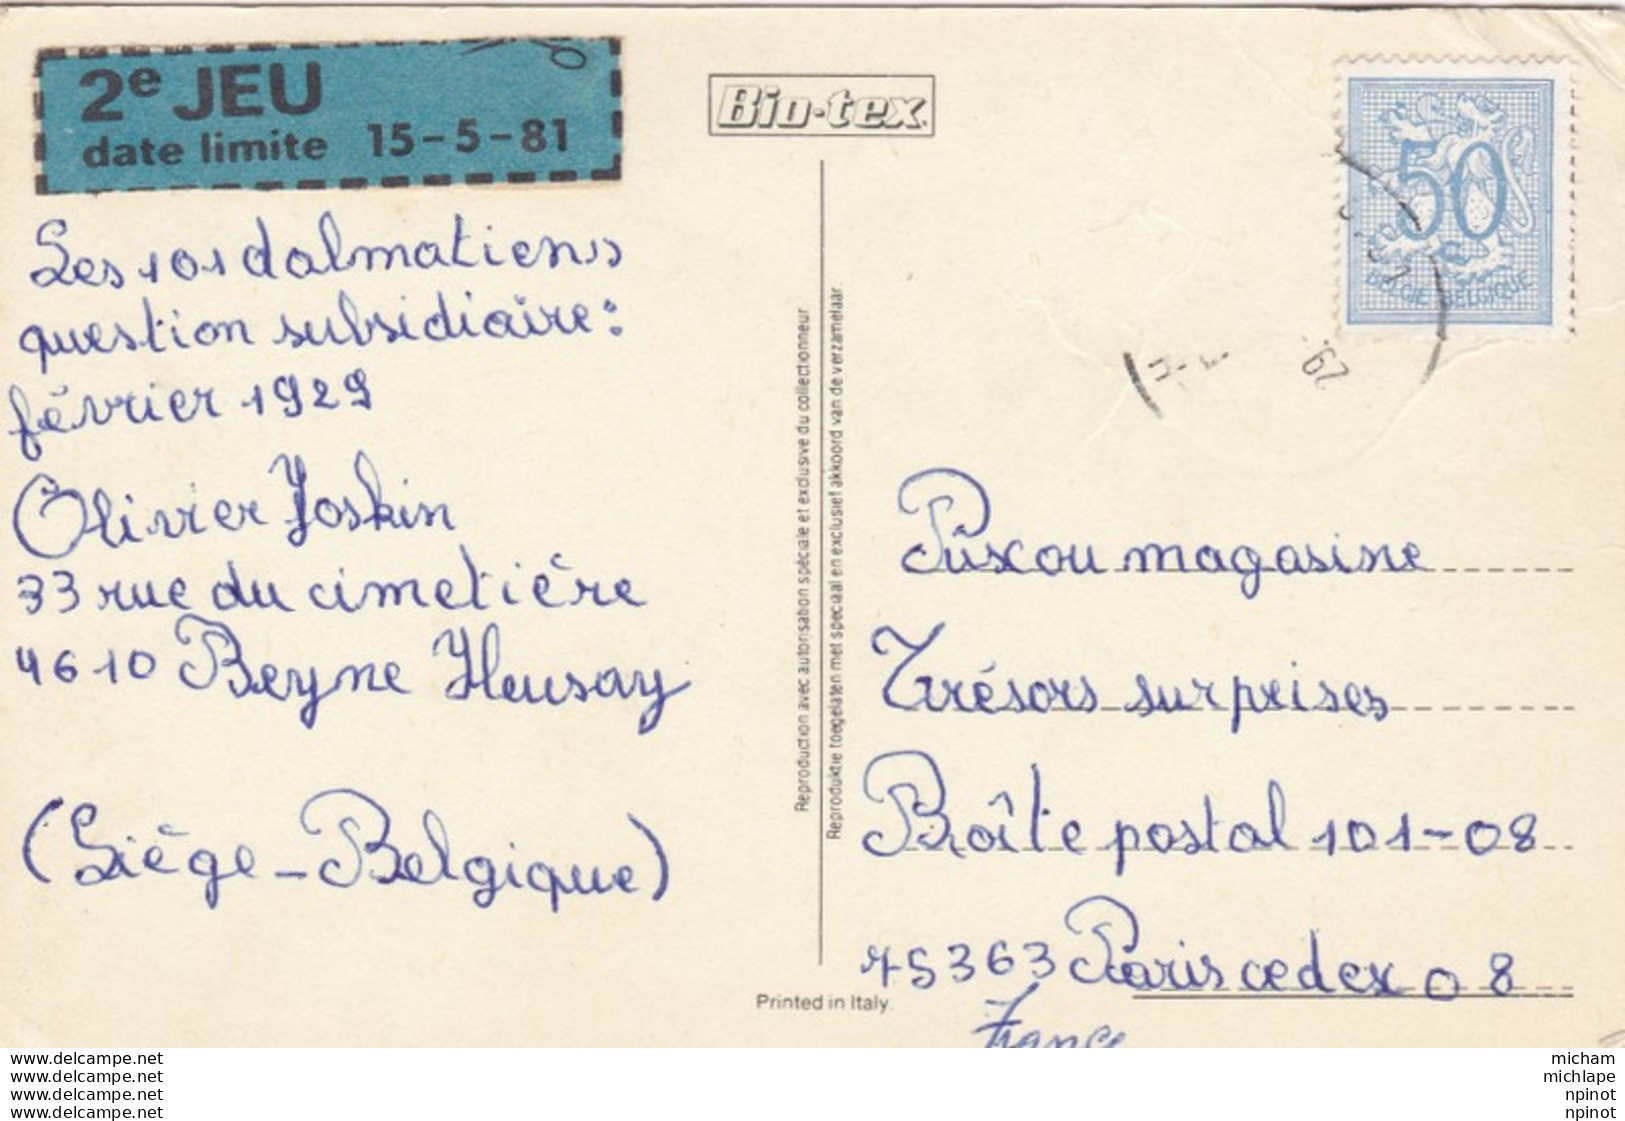 2e JEU
date limite 15-5-81
Les 101 dalmatiens
question subsidiaire:
février 1929
Olivier Joskin
33 rue du cimetière
4610 Beyne Heusay
(Liège-Belgique)
Bio-tex
Reproduction avec autorisation spéciale et exclusive du collectionneur
Reproduktie toegelaten met speciaal en exclusief akkoord van de verzamelaar
Printed in Italy.
50
BELGIE BELGIQUE
29.
Pûxou magasine
Trésors surprises
Boîte postal 101-08
75363 Paris cedex 08
France
www.delcampe.net
www.delcampe.net
www.delcampe.net
www.delcampe.net
micham
michlape
npinot
npinot